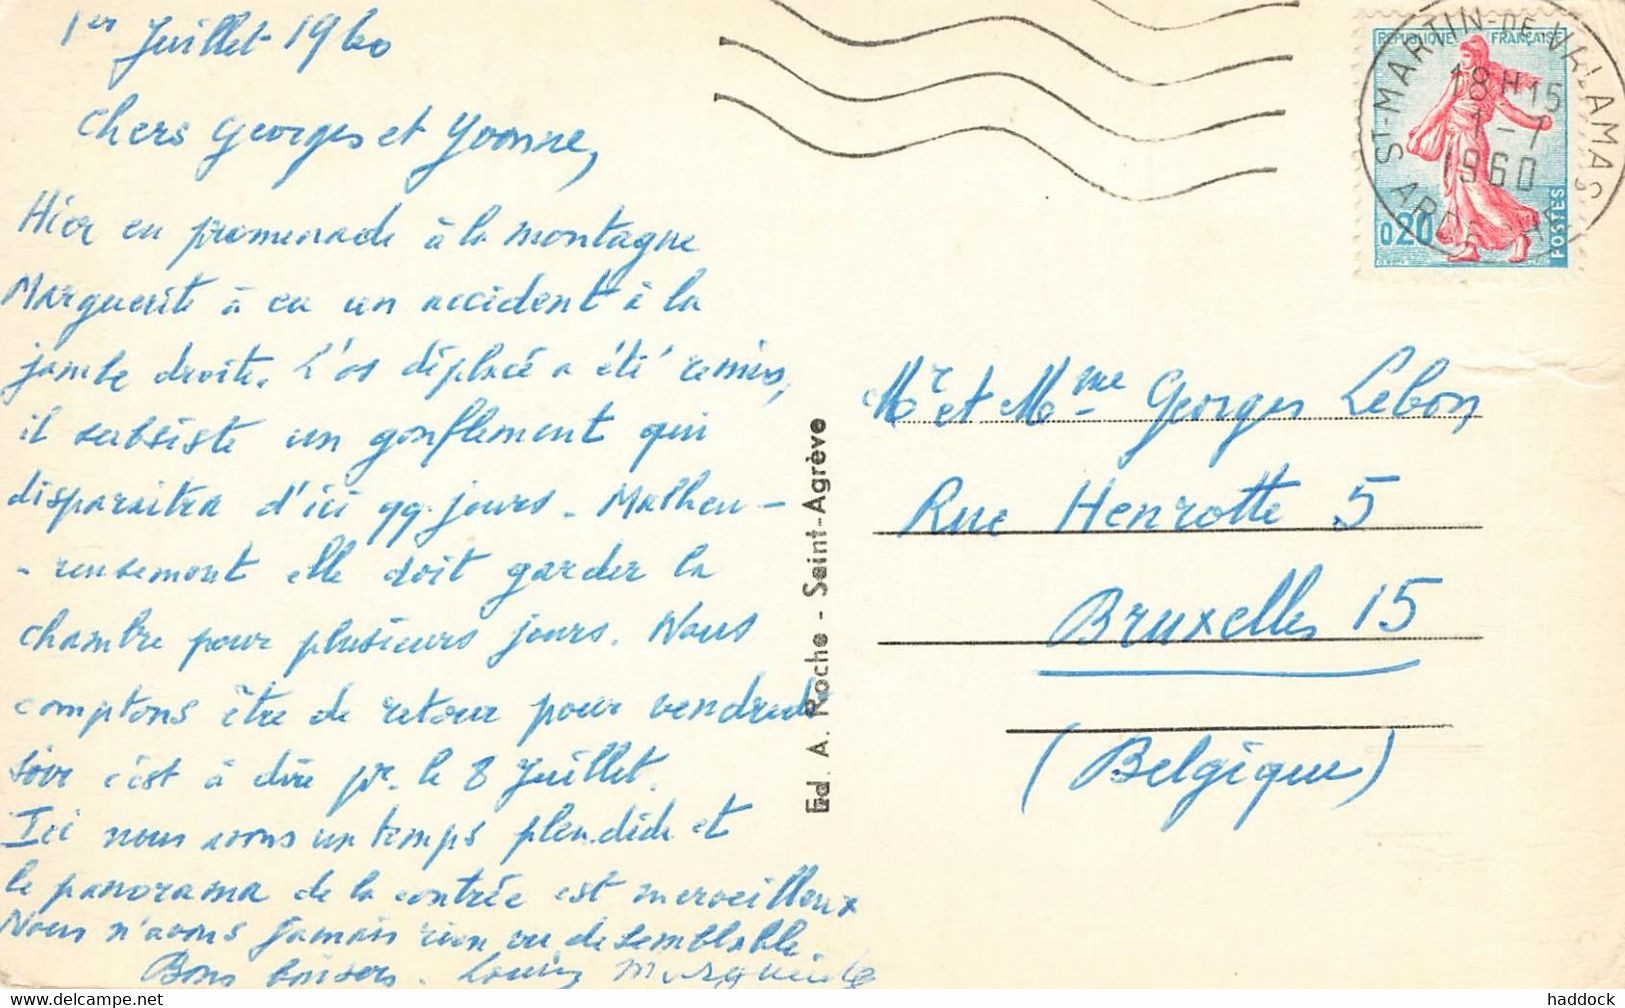 1er Juillet 1960
Chers Georges et Yvonne,
Hier en promenade à la montagne
Marguerite à eu un accident à la
jambe droite. L'os déplacé a été remis,
il subsiste un gonflement qui
disparaitra d'ici qq. jours. Malheu-
-reusement elle doit garder la
chambre pour plusieurs jours. Nous
comptons être de retour pour vendredi
soir c'est à dire pr. le 8 Juillet.
Ici nous avons un temps splendide et
le panorama de la contrée est merveilleux
Nous n'avons jamais rien vu de semblable.
Bons baisers. Louis Marguerite
Ed. A. Roche - Saint-Agrève
REPUBLIQUE FRANÇAISE
0,20
POSTES
ST-MARTIN-DE-VALAMAS
18H15
1-7
1960
ARDECHE
Mr et Mme Georges Lebon,
Rue Henrotte 5
Bruxelles 15
(Belgique)
haddock